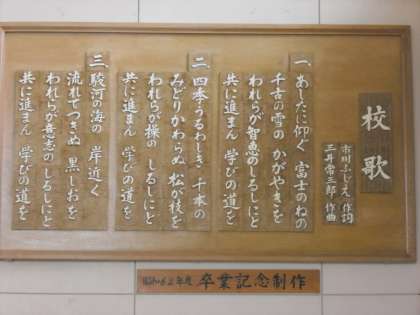 校歌
市川ふじえ 作詞
三井常三郎 作曲
一、あしたに仰ぐ 富士のねの
千古の雪の かがやきを
われらが智恵の しるしにと
共に進まん 学びの道を
二、四季うるわしき 千本の
みどりかわらぬ 松が枝を
われらが操の しるしにと
共に進まん 学びの道を
三、駿河の海の 岸近く
流れてつきぬ 黒しおを
われらが意志の しるしにと
共に進まん 学びの道を
年度 卒業記念制作